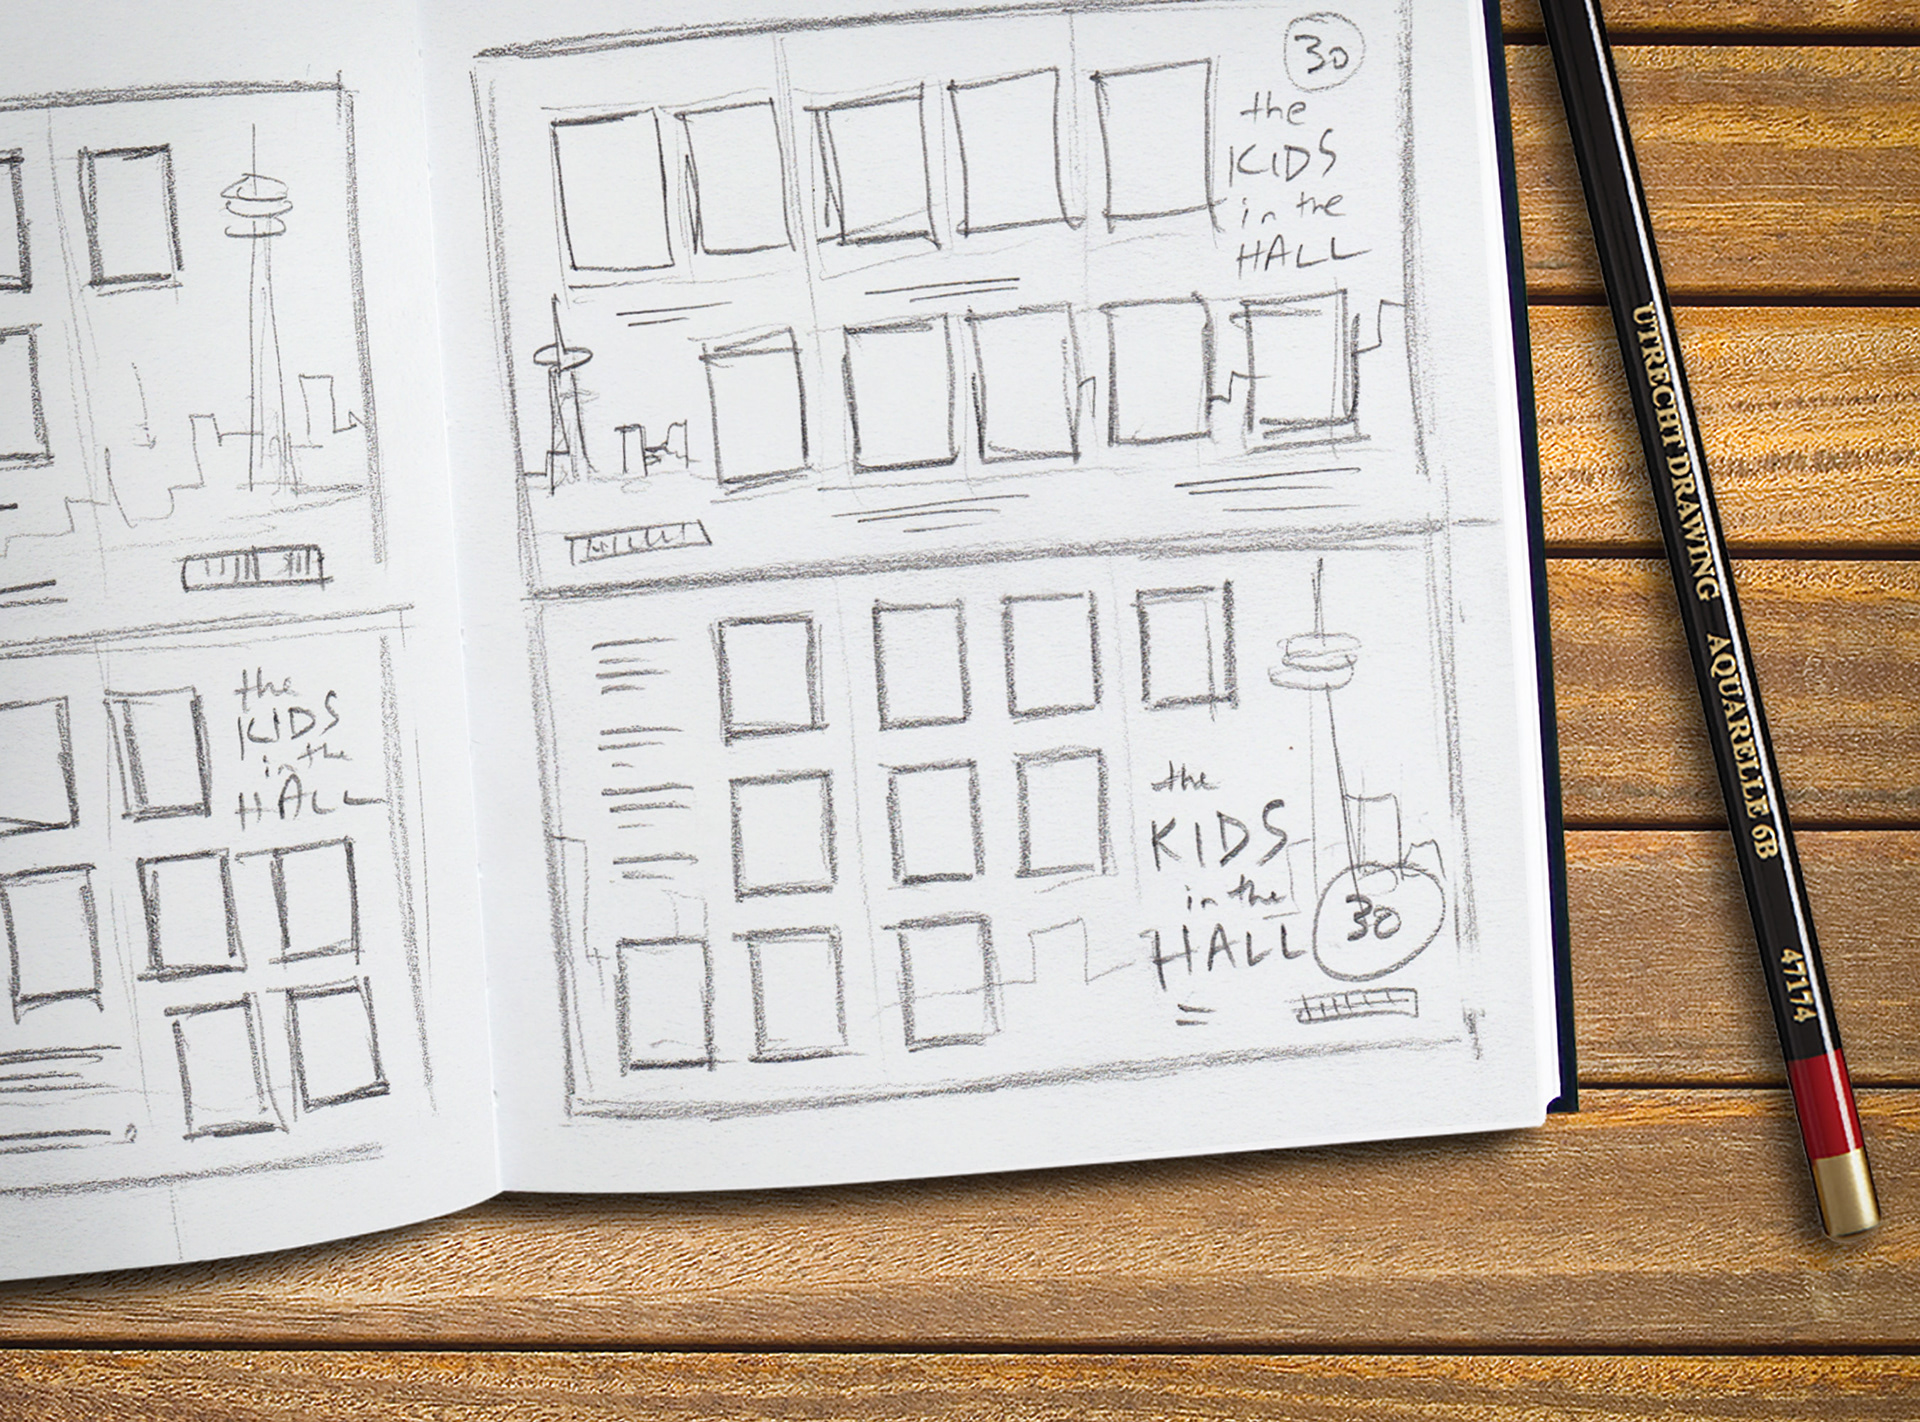 the
KIDS
in the
HALL
30
the
KIDS
in the
HALL
the
KIDS
in the
HALL
30
UTRECHT DRAWING AQUARELLE 6B 47174